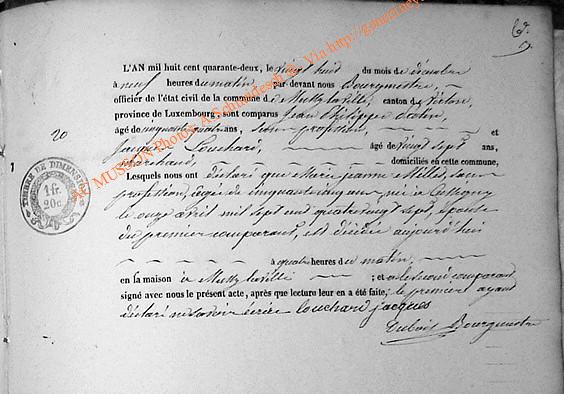 L'AN mil huit cent quarante-deux, le vingt huit du mois de décembre
à neuf heures du matin, par-devant nous Bourgmestre,
officier de l'état civil de la commune de Mussy la ville, canton de Virton,
province de Luxembourg, sont comparus Jean Philippe
20
âgé de cinquante quatre ans, sans profession, et
Jacques Louchard, âgé de vingt sept ans,
marchand, domiciliés en cette commune,
Lesquels nous ont déclaré que Marie Jeanne sans
profession, agée de cinquante cinq ans, née à
le onze avril mil sept cent quatre vingt sept, épouse
du premier comparant, est décédée aujourd'hui
à quatre heures du matin,
en sa maison à Mussy la ville ; et a le second comparant
signé avec nous le présent acte, après que lecture leur en a été faite, le premier ayant
déclaré ne savoir écrire Louchard jacques
Dubois Bourgmestre
TIMBRE DE DIMENSION
1 fr.
20 c.
MUSSON Photos A. Schmideschn Via http://